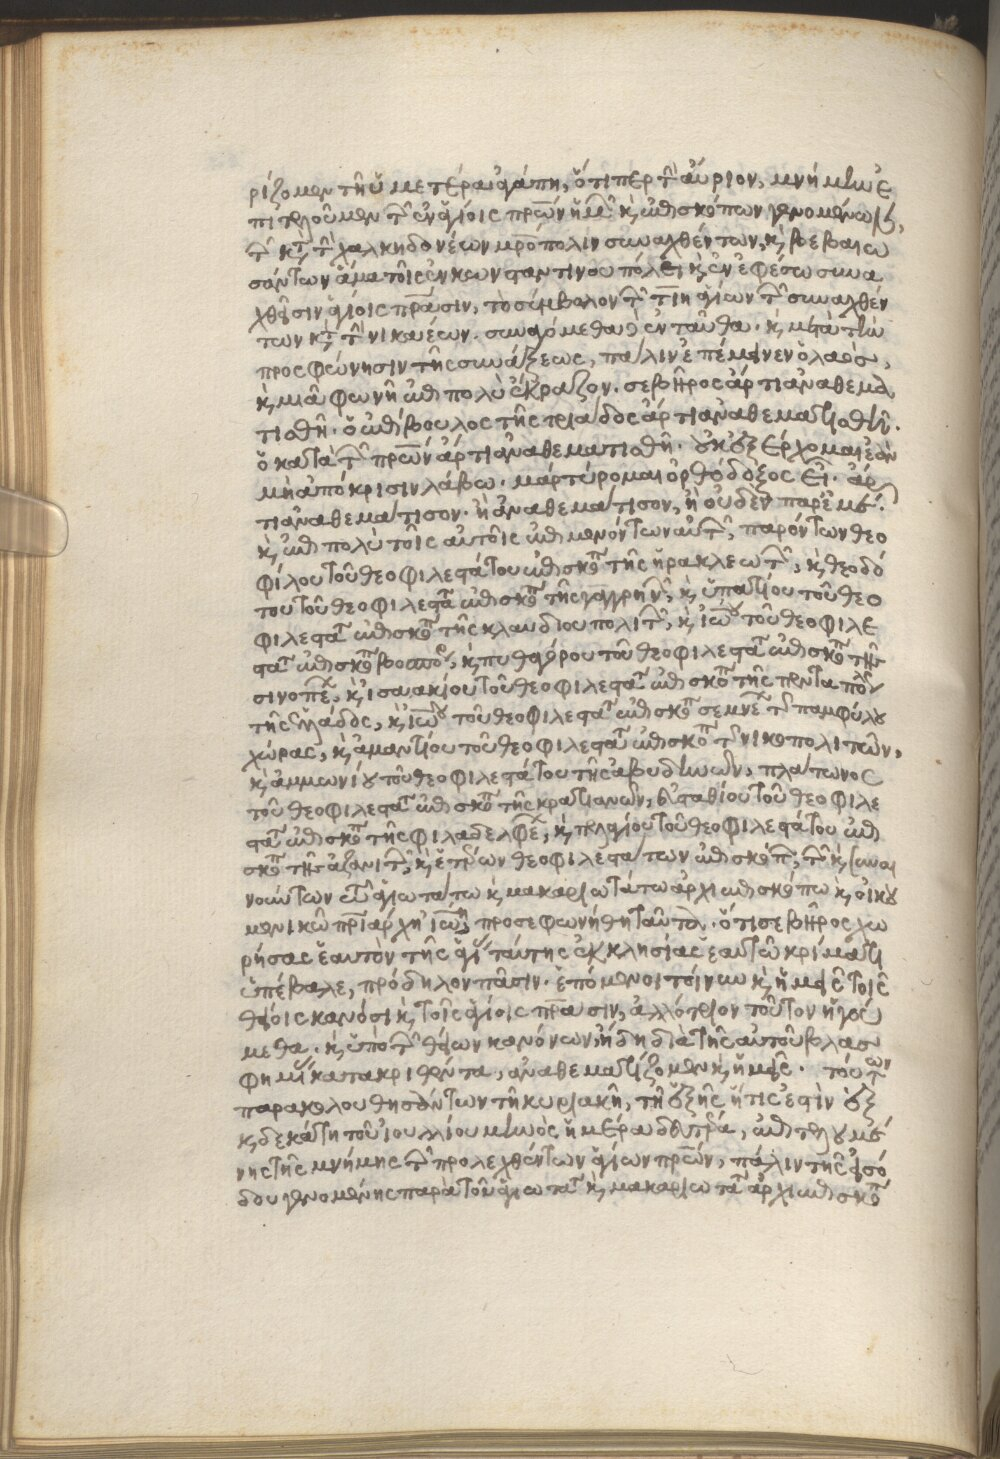 ρίζομεν τῇ ὑμετέρα ἀγάπη, ὅτι περ τ̂ αὔριον, μνήμην ἐ
πιτελοῦμεν τ̂ ἐν ἁγίοις πρ̅ων ἡμ̂ κ̀ ἐπισκόπων γενομένων,
τ̂ κ̀τ̀ τ̂ χαλκηδονέων μρόπολιν συναχθέντων, κ̀ βεβαιω
σάντων ἅμα τοῖς ἐν κωνσταντίνου πόλει κ̀ ἐν ἐφέσω συνα
χθεῖσιν ἁγίοις πρ̅άσιν, τὸ σύμβολον τ̂ τιη ἁγίων τ̂ συναχθέν
των κ̀τ̀ τ̂ νικαιέων. συναγόμεθα δὲ ἐνταῦθα. κ̀ μετὰ τὴν
προσφώνησιν τῆς συνάξεως, πάλιν ἐπέμεινεν ὁ λαὸς,
κ̀ μιᾶ φωνῆ ἐπιπολὺ ἔκραζον. σεβῆρος ἄρτι ἀναθεμα
τισθῆ. ὁ ἐπίβουλος τῆς τριάδος ἄρτι ἀναθεματισθῆ.
ὁ κατὰ τ̂ πρ̅ων ἄρτι ἀναθεματισθῆ. οὐκ ἐξέρχομαι ἐὰν
μὴ ἀπόκρισιν λάβω. μάρτύρομαι ὀρθόδοξος εἶ. ἄρ
τι ἀναθεμάτισον. ἢ ἀναθεμάτισον, ἢ οὐδὲν παρέμε.
κ̀ ἐπιπολὺ τοῖς αὐτοῖς ἐπιμενόντων αὐτ̂, παρόντων θεο
φίλου τοῦ θεοφιλεστάτου ἐπισκό̅π τῆς ἡρακλεωτ̂, κ̀ θεοδό
του τοῦ θεοφιλεστά ἐπισκό̅π τῆς γαγγρηντ̂, κ̀ ὑπατίου τοῦ θεο
φιλεστά ἐπισκό̅π τῆς κλαυδιουπολιτ̂, κ̀ ἰω̅ου τοῦ θεοφιλε
στά ἐπισκό̅π βοσπορ, κ̀ πυθαγόρου τοῦ θεοφιλεστά ἐπισκό̅π τῆς
σινοπέ, κ̀ ἰσαακίου τοῦ θεοφιλεστά ἐπισκό̅π τῆς πενταπόλ
τῆς ἑλλάδος, κ̀ ἰω̅ου τοῦ θεοφιλεστά ἐπισκό̅π σεμνέ τ̂ παμφύλου
χώρας, κ̀ ἀμαντίου τοῦ θεοφιλεστά ἐπισκό̅π τ̂ νικοπολιτῶν,
κ̀ ἀμμωνίου τοῦ θεοφιλεστάτου τῆς ἀβυδηνῶν, πλάτωνος
τοῦ θεοφιλεστά ἐπισκό̅π τῆς κρατιανῶν, εὐσταθίου τοῦ θεοφιλε
στά ἐπισκό̅π τῆς φιλαδελφέ, κ̀ πελαγίου τοῦ θεοφιλεστάτου ἐπι
σκό̅π τῆς ἀζανιτ̂, κ̀ ἑτέρων θεοφιλεστάτων ἐπισκόπ, τ̂ κ̀ συναι
νούντων τῶ ἁγιωτάτω κ̀ μακαριωτάτω ἀρχιεπισκόπω κ̀ οἰκου
μενικῶ πρ̅ιάρχη ἰω̅, προσεφωνήθη ταῦτα. ὅτι σεβῆρος χω
ρήσας ἑαυτὸν τῆς ἁγί ταύτης ἐκκλησίας ἑαυτῶ κρίματι
ὑπέβαλε, πρόδηλον πᾶσιν. ἑπόμενοι τοίνυν κ̀ ἡμεῖς τοῖς
θείοις κανόσι κ̀ τοῖς ἁγίοις πρ̅άσιν, ἀλλότριον τοῦτον ἡγού
μεθα. κ̀ ὑπὸ τ̂ θείων κανόνων, ἤδη διὰ τῆς αὐτοῦ βλασ
φημί κατακριθέντα, ἀναθεματίζομεν κ̀ ἡμεῖς. τούτων
παρακολουθησάντων τῆ κυριακῆ, τῆ ἑξῆς ἥτις ἐστὶν ἑξ
κ̀ δεκάτη τοῦ ἰουλλίου μηνὸς ἡμέρα δευτέρα, ἐπιτελουμέ
νης τῆς μνήμης τ̂ προλεχθέντων ἁγίων πρ̅ων, πάλιν τῆς εἰσό
δου γενομένης παρὰ τοῦ ἁγιωτά κ̀ μακαριωτά ἀρχιεπισκό̅π